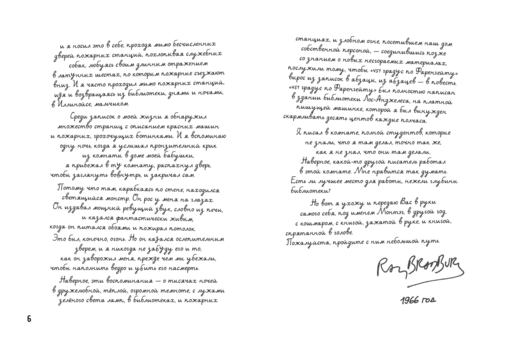 и я носил это в себе, проходя мимо бесчисленных
дверей пожарных станций, похлопывая служебных
собак, любуясь своим длинным отражением
в латунных шестах, по которым пожарные съезжают
вниз. И я часто проходил мимо пожарных станций,
идя и возвращаясь из библиотеки, днями и ночами,
в Иллинойсе, мальчиком.
Среди записок о моей жизни я обнаружил
множество страниц с описанием красных машин
и пожарных, грохочущих ботинками. И я вспоминаю
одну ночь, когда я услышал пронзительный крик
из комнаты в доме моей бабушки,
я прибежал в ту комнату, распахнул дверь,
чтобы заглянуть вовнутрь, и закричал сам.
Потому что там, карабкаясь по стене, находился
светящийся монстр. Он рос у меня на глазах.
Он издавал мощный ревущий звук, словно из печи,
и казался фантастически живым,
когда он питался обоями и пожирал потолок.
Это был, конечно, огонь. Но он казался ослепительным
зверем, и я никогда не забуду его и то,
как он заворожил меня, прежде чем мы убежали,
чтобы наполнить ведро и убить его насмерть.
Наверное, эти воспоминания — о тысячах ночей
в дружелюбной, тёплой, огромной темноте, с лужами
зелёного света ламп, в библиотеках, и пожарных
6
станциях, и злобном огне, посетившем наш дом
собственной персоной, — соединившись позже
со знанием о новых несгораемых материалах,
послужили тому, чтобы «451° градус по Фаренгейту»
вырос из записок в абзацы, из абзацев — в повесть.
«451° градус по Фаренгейту» был полностью написан
в здании библиотеки Лос-Анджелеса, на платной
пишущей машинке, которой я был вынужден
скармливать десять центов каждые полчаса.
Я писал в комнате, полной студентов, которые
не знали, что я там делал, точно так же,
как я не знал, что они там делали.
Наверное, какой-то другой писатель работал
в этой комнате. Мне нравится так думать.
Есть ли лучшее место для работы, нежели глубины
библиотеки?
Но вот я ухожу и передаю Вас в руки
самого себя, под именем Монтэг, в другой год,
с кошмаром, с книгой, зажатой в руке, и книгой,
спрятанной в голове.
Пожалуйста, пройдите с ним небольшой путь.
RAY BRADBURY
1966 год